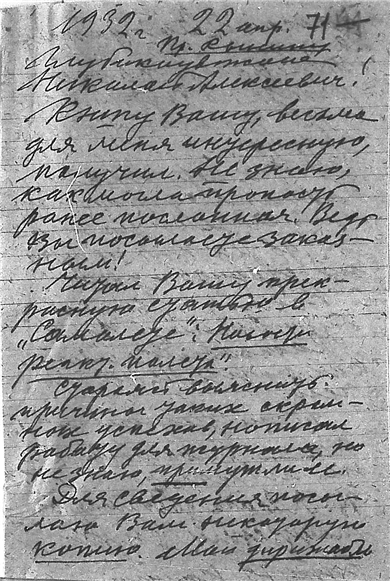 1932 г 22 апр. 71
Глубокоуважаемый
Николай Алексеевич!
Книгу Вашу, весьма
для меня интересную,
получил. Не знаю,
как могла пропасть
ранее посланная. Ведь
Вы посылаете заказ-
ным!
Читал Вашу прек-
расную статью в
"Самолете":
реакт. полета"
Старался выяснить
причины таких скром-
ных успехов, написал
работу для журнала, но
не знаю, примут ли ее.
Для сведения посы-
лаю Вам некоторую
копию. Мои дирижабл